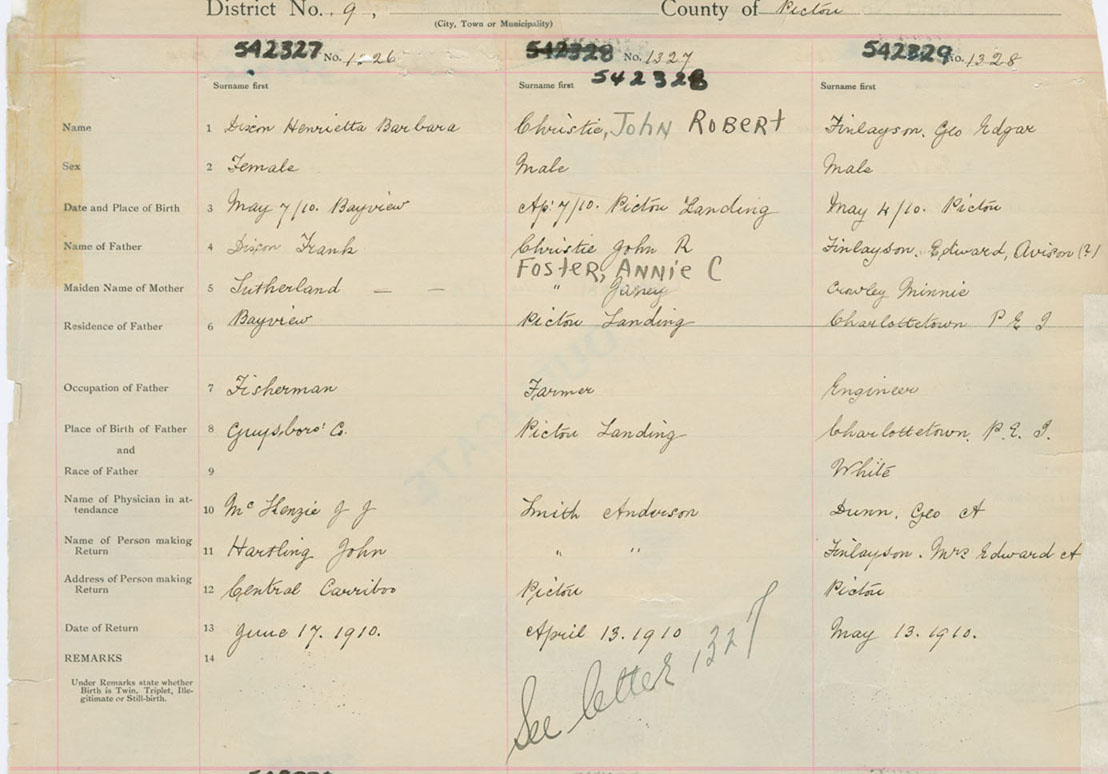 District No. 9, County of Pictou
(City, Town or Municipality)
542327 No. 1326 542328 No. 1327 542329 No. 1328
542328
Surname first Surname first Surname first
Name 1 Dixon Henrietta Barbara Christie, John Robert Finlayson, Geo Edgar
Sex 2 Female Male Male
Date and Place of Birth 3 May 7/10. Bayview Ap' 7/10. Pictou Landing May 4/10. Pictou
Name of Father 4 Dixon Frank Christie John R Finlayson, Edward, Avison (?)
Foster, Annie C
Maiden Name of Mother 5 Sutherland — — " Crowley Minnie
Residence of Father 6 Bayview Pictou Landing Charlottetown P E I
Occupation of Father 7 Fisherman Farmer Engineer
Place of Birth of Father 8 Guysboro' Co. Pictou Landing Charlottetown, P. E. I.
and
Race of Father 9 White
Name of Physician in at-
tendance 10 Mc Kenzie J J Smith Anderson Dunn, Geo A
Name of Person making
Return 11 Hartling John " " Finlayson. Mrs Edward A
Address of Person making
Return 12 Central Carriboo Pictou Pictou
Date of Return 13 June 17. 1910. April 13. 1910 May 13. 1910.
REMARKS 14
Under Remarks state whether
Birth is Twin, Triplet, Ille-
gitimate or Still-birth.
See letter 1327